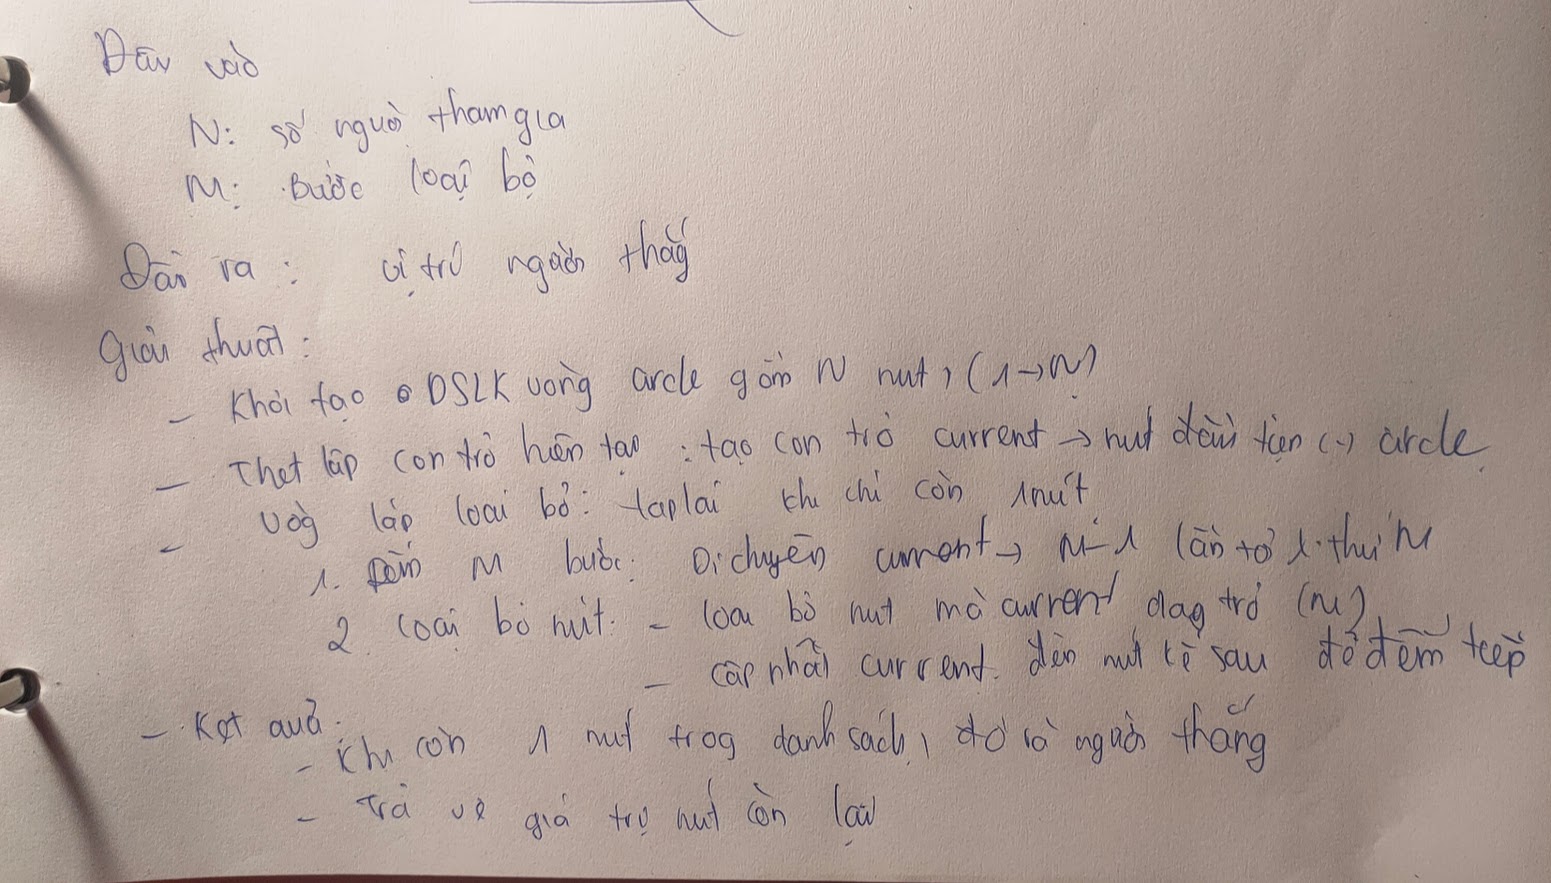 Đầu vào
N: số người tham gia
M: Bước loại bỏ
Đầu ra : vị trí người thắg
Giải thuật:
- Khởi tạo DSLK vòng circle gồm N nut, (1→N)
- Thet lập con trỏ hiện tạo : tạo con trỏ current → nut đầu tiên (-) circle
- Vòg lặp loại bỏ: lặplai khi chỉ còn 1 nút
1. Đếm M bước: Di chuyển current → M-1 lần tở thứ M
2. Loại bỏ nút: - loại bỏ nut mà current đag trỏ (M)
- cập nhật current đến nút kế sau để đếm tiếp
- Kết quả:
- Khi còn 1 nut trog danh sách, đó là người thắng
- Trả về giá trị nut còn lại